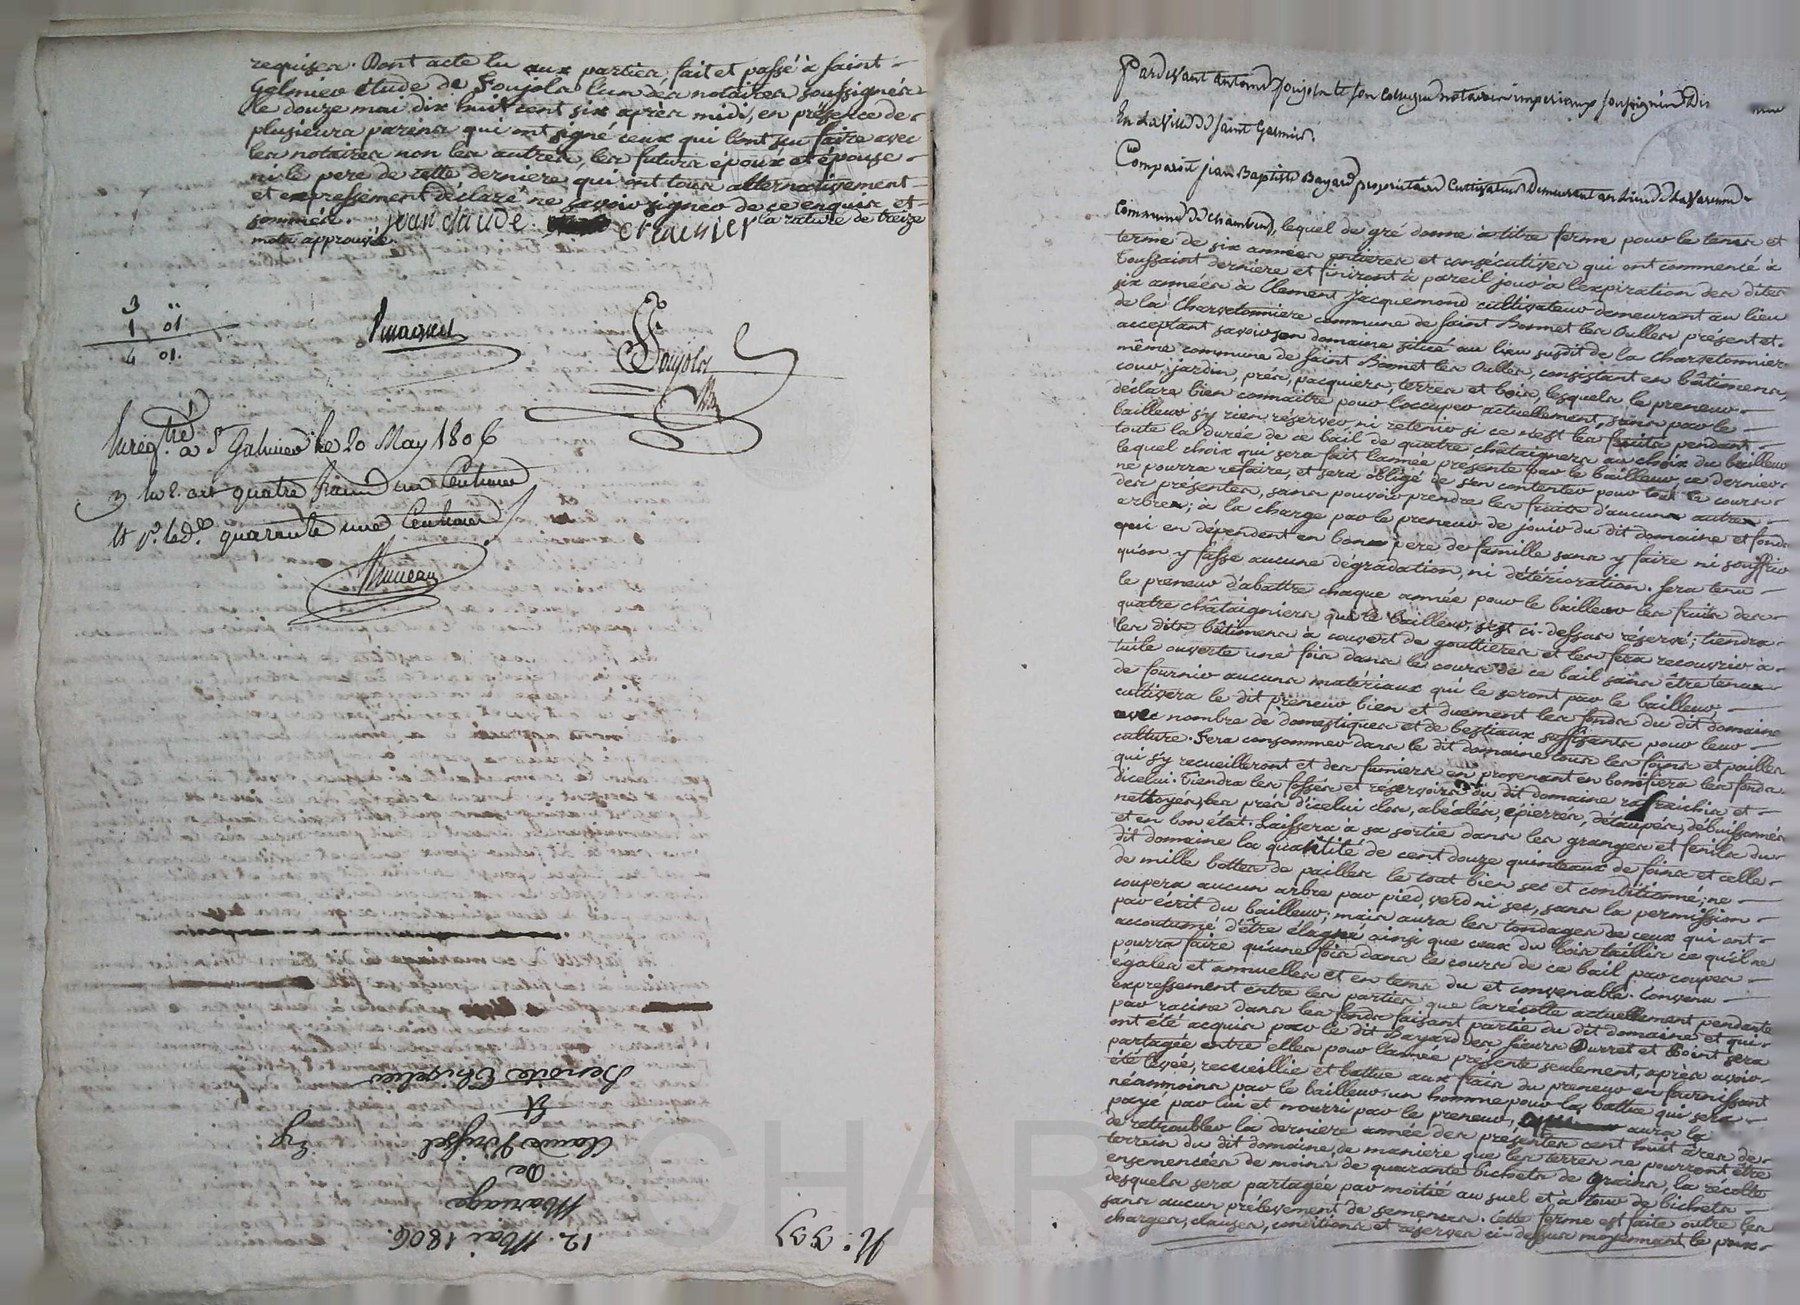 requises. Dont acte lu aux parties, fait et passé à saint
Galmier étude de Soujols l'un des notaires soussignés
le douze mai dix huit cent six après midi, en présence de
plusieurs parens qui ont signé ceux qui l'ont su faire avec
les notaires non les autres, les futurs époux et épouse
ni le pere de cette derniere qui ont tous alternativement
et expressement déclaré ne savoir signer de ce enquis et
sommés. jean claude la rature de treize
mots approuvée
3
1 01
4 01.
Soujols
Enreg.tré à St Galmier le 20 May 1806
quatre francs un Centime
quarante une Centimes
Bruneau
N.
12. Mai 1806.
Mariage
De
Claude
Et
Benoite
Exp
Pardevant Antoine Soujols et son collegue notaires imperiaux soussignés
En la ville de saint Galmier
Comparoit jean Baptiste Bayard proprietaire Cultivateur Demeurant au Lieu de la Varenne
Commune de chambeuf, lequel de gré donne à titre ferme pour le tems et
terme de six années entieres et consécutives qui ont commencé à
Toussaint derniere et finiront à pareil jour à l'expiration des dites
six années à Clement Jacquemond cultivateur demeurant au lieu
de la Charsetonniere commune de saint Bonnet les Oulles présent et
acceptant savoir son domaine situé au lieu susdit de la Charsetonnier
même commune de saint Bonnet les Oulles, consistant en bâtimens,
cour, jardin, prés, pacquiers, terres et bois, lesquels le preneur
déclare bien connaitre pour l'occuper actuellement, sans par le
bailleur s'y rien réserver ni retenir si ce n'est les fruits pendant
toute la durée de ce bail de quatre châtaigners au choix du bailleur
lequel choix qui sera fait l'année présente par le bailleur, ce dernier
ne pourra refaire, et sera obligé de s'en contenter pour tout le cours
des présentes, sans pouvoir prendre les fruits d'aucuns autres
arbres; à la charge par le preneur de jouir du dit domaine et fonds
qui en dépendent en bon pere de famille sans y faire ni souffrir
qu'on y fasse aucune dégradation, ni détérioration. Sera tenu
le preneur d'abattre chaque année pour le bailleur les fruits des
quatre châtaigniers que le bailleur s'est ci-dessus réservé; tiendra
les dits bâtimens à couvert de gouttieres et les fera recouvrir à
tuile ouverte une fois dans le cours de ce bail sans être tenu
de fournir aucuns matériaux qui le seront par le bailleur
cultivera le dit preneur bien et duement les fonds du dit domaine
avec nombre de domestiques et de bestiaux suffisants pour leur
culture. Fera consommer dans le dit domaine tous les foins et pailles
qui s'y recueilleront et des fumiers en provenant en bonifiera les fonds
d'icelui. Tiendra les fossés et réservoirs du dit domaine rafraichis et
nettoyés, les prés d'icelui clos, abéalés, épierrés, détaupés, débuissonnés
et en bon état. Laissera à sa sortie dans les granges et fenils du
dit domaine la quantité de cent douze quinteaux de foins et celle
de mille bottes de pailles le tout bien sec et conditionné; ne
coupera aucun arbre par pied, verd ni sec, sans la permission
par écrit du bailleur; mais aura les tondages de ceux qui ont
accoutumé d'être élagué ainsi que ceux du bois taillis ce qu'il ne
pourra faire qu'une fois dans le cours de ce bail par coupes
égales et annuelles et en tems du et convenable. Convenu
expressement entre les parties que la récolte actuellement pendante
par racine dans les fonds faisant partie du dit domaine et qui
ont été acquis par le dit Bayard des sieurs Durret et Point sera
partagée entre elles pour l'année présente seulement, après avoir
été levée, recueillie et battue aux frais du preneur en fournissant
néanmoins par le bailleur un homme pour la battue qui sera
payé par lui et nourri par le preneur, aura la
de retroubler la derniere année des présentes cent huit ares de
terrein du dit domaine, de maniere que les terres ne pourront être
ensemencées de moins de quarante bichets de grains, la récolte
desquels sera partagée par moitié au suel et à tour de bichets
sans aucun prélevement de semences. Cette ferme est faite outre les
charges, clauses, conditions et réserves ci-dessus moyennant le prix
CHAR